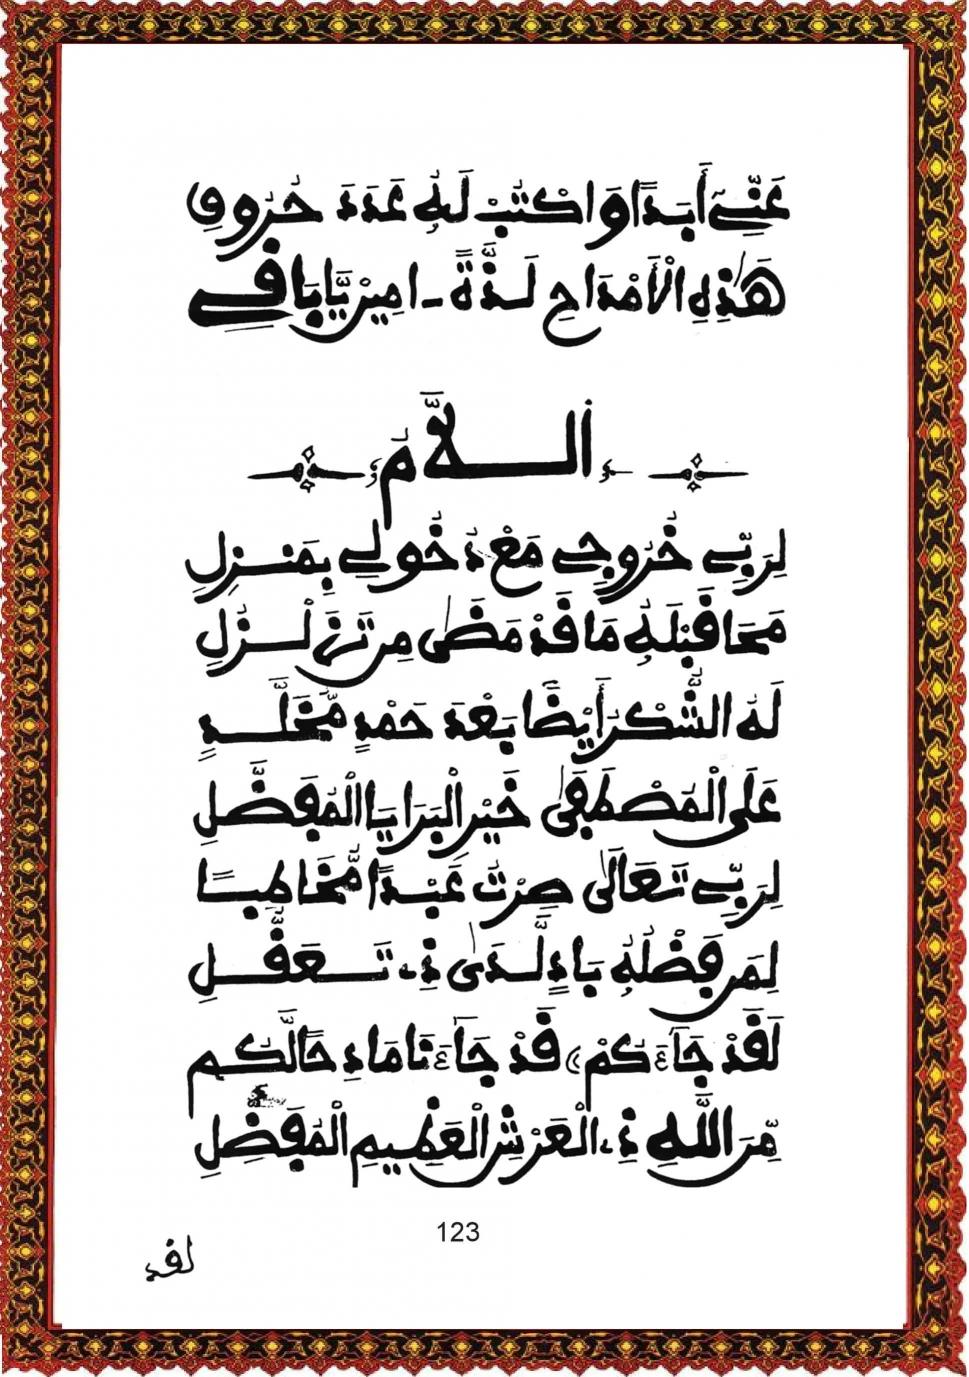 عَنِّے أَبَدًا وَاكْتُبْ لَهُ عَدَدَ حُرُوفِ
هَٰذِهِ الْأَمْدَاحِ لَذَّةً ـ امِين يَّا بَافِے
لِرَبِّے خُرُوجِے مَعْ دُخُولِے بِمَنزِلِ
مَحَا قَبْلَهُ مَا قَدْ مَضَىٰ مِن تَزَلْزُلِ
لَهُ الشُّكْرُ أَيْضًا بَعْدَ حَمْدٍ مُّخَلَّدٍ
عَلَى الْمُصْطَفَىٰ خَيْرِ الْبَرَايَا الْمُفَضَّلِ
لِرَبِّے تَعَالَىٰ صِرْتُ عَبْدًا مُّخَاطِبًا
لِمَن فَضْلُهُ بَادٍ لَّدَىٰ ذِے تَعَقُّلِ
لَقَدْ جَآءَكُمْ، قَدْ جَآءَنَا مَادِحًا لَّكُم
مِّنَ اللَّهِ ذِے الْعَرْشِ الْعَظِيمِ الْمُفَضِّلِ
123
لقد